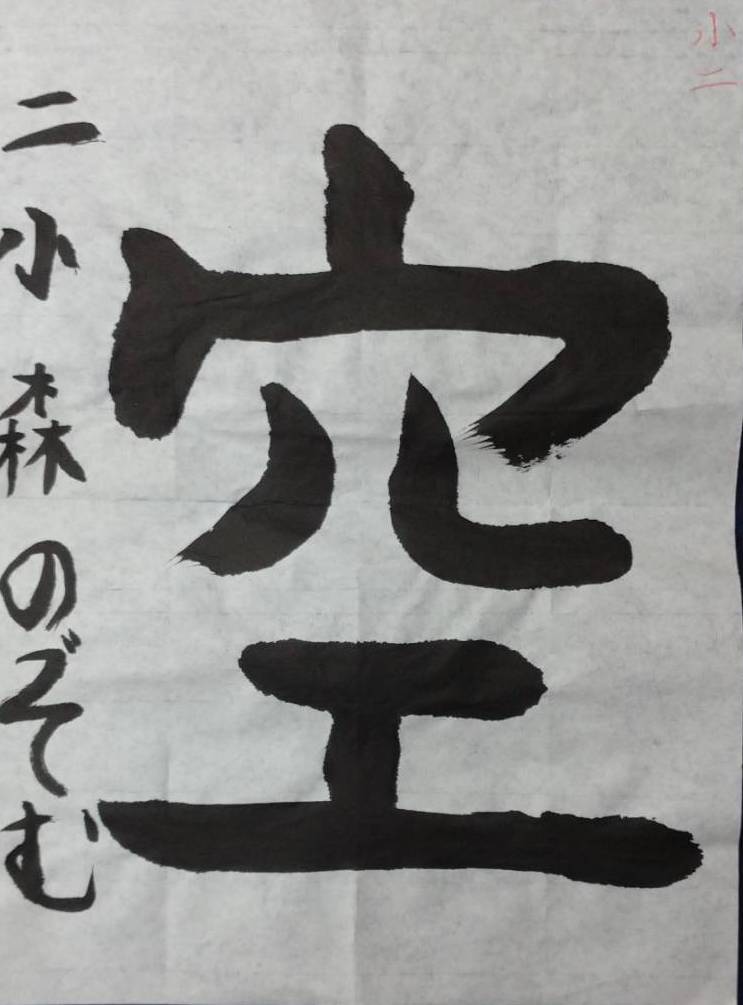 小二
空
二小森のぞむ